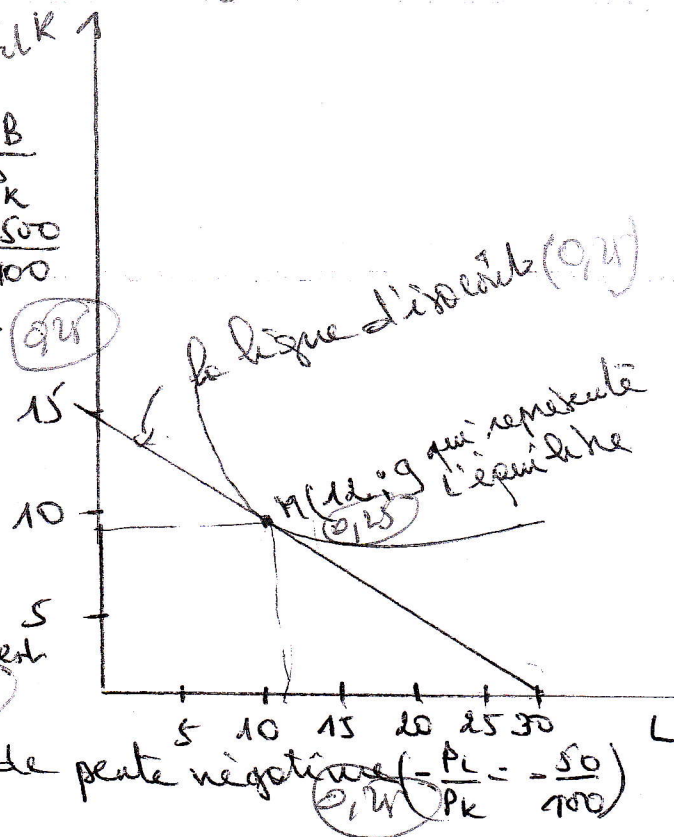 K
B
K
500
100
0,25
la ligne d'isocoût (0,25)
15
M(12;9 qui représente
l'équilibre
0,25
10
5
est
5 10 15 20 25 30 L
de pente négative (-PL/PK = -50/100)
0,25